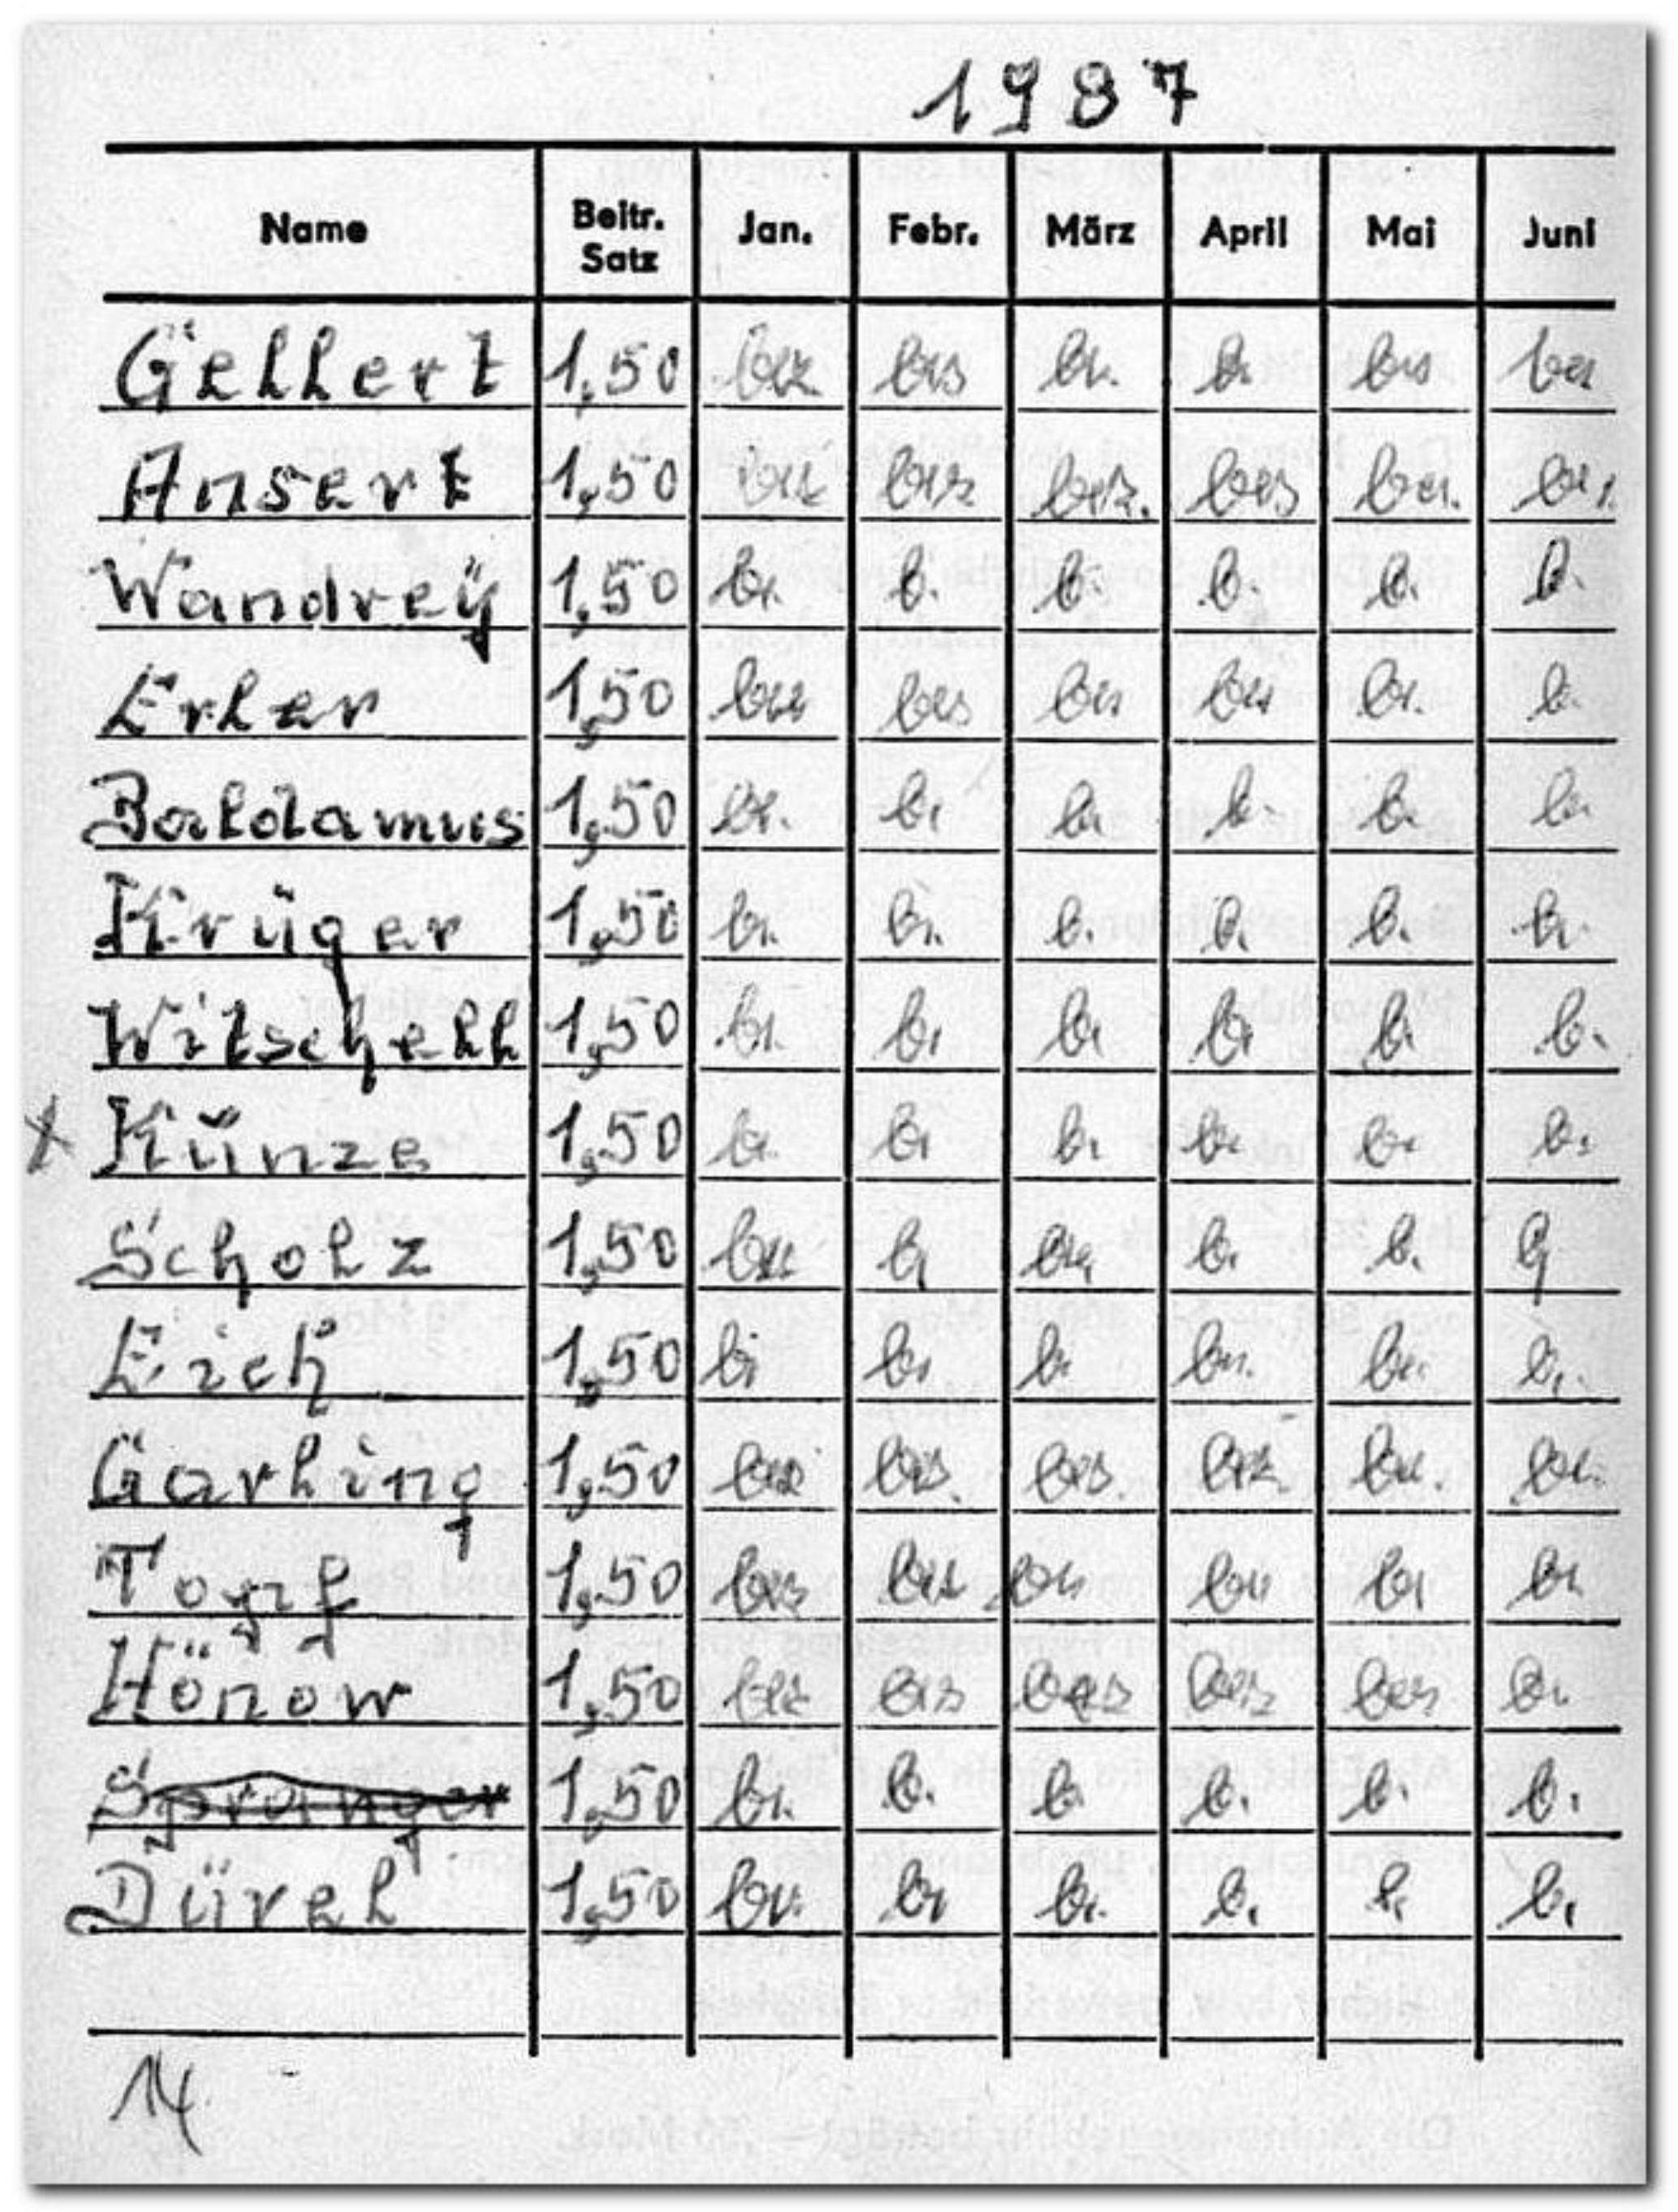 1987
Name Beitr. Satz Jan. Febr. März April Mai Juni
Gellert 1,50 bez bez b. b. bez bez
Ansert 1,50 bez bez bez. bez bez. bez.
Wandrey 1,50 b. b. b. b. b. b.
Erler 1,50 bez bez bez bez b. b.
Baldamus 1,50 b. b. b. b. b. b.
Krüger 1,50 b. b. b. b. b. b.
Witschell 1,50 b. b. b. b. b. b.
x Kunze 1,50 b. b. b. b. b. b.
Scholz 1,50 bez b. bez b. b.
Eich 1,50 b. b. b. b. b. b.
Garling 1,50 bez bez. bez. bez. bez. bez.
Topf 1,50 bez bez bez bez b. b.
Hönow 1,50 bez bez bez bez bez b.
Spranger 1,50 b. b. b. b. b. b.
Dürel 1,50 b. b. b. b. b. b.
14